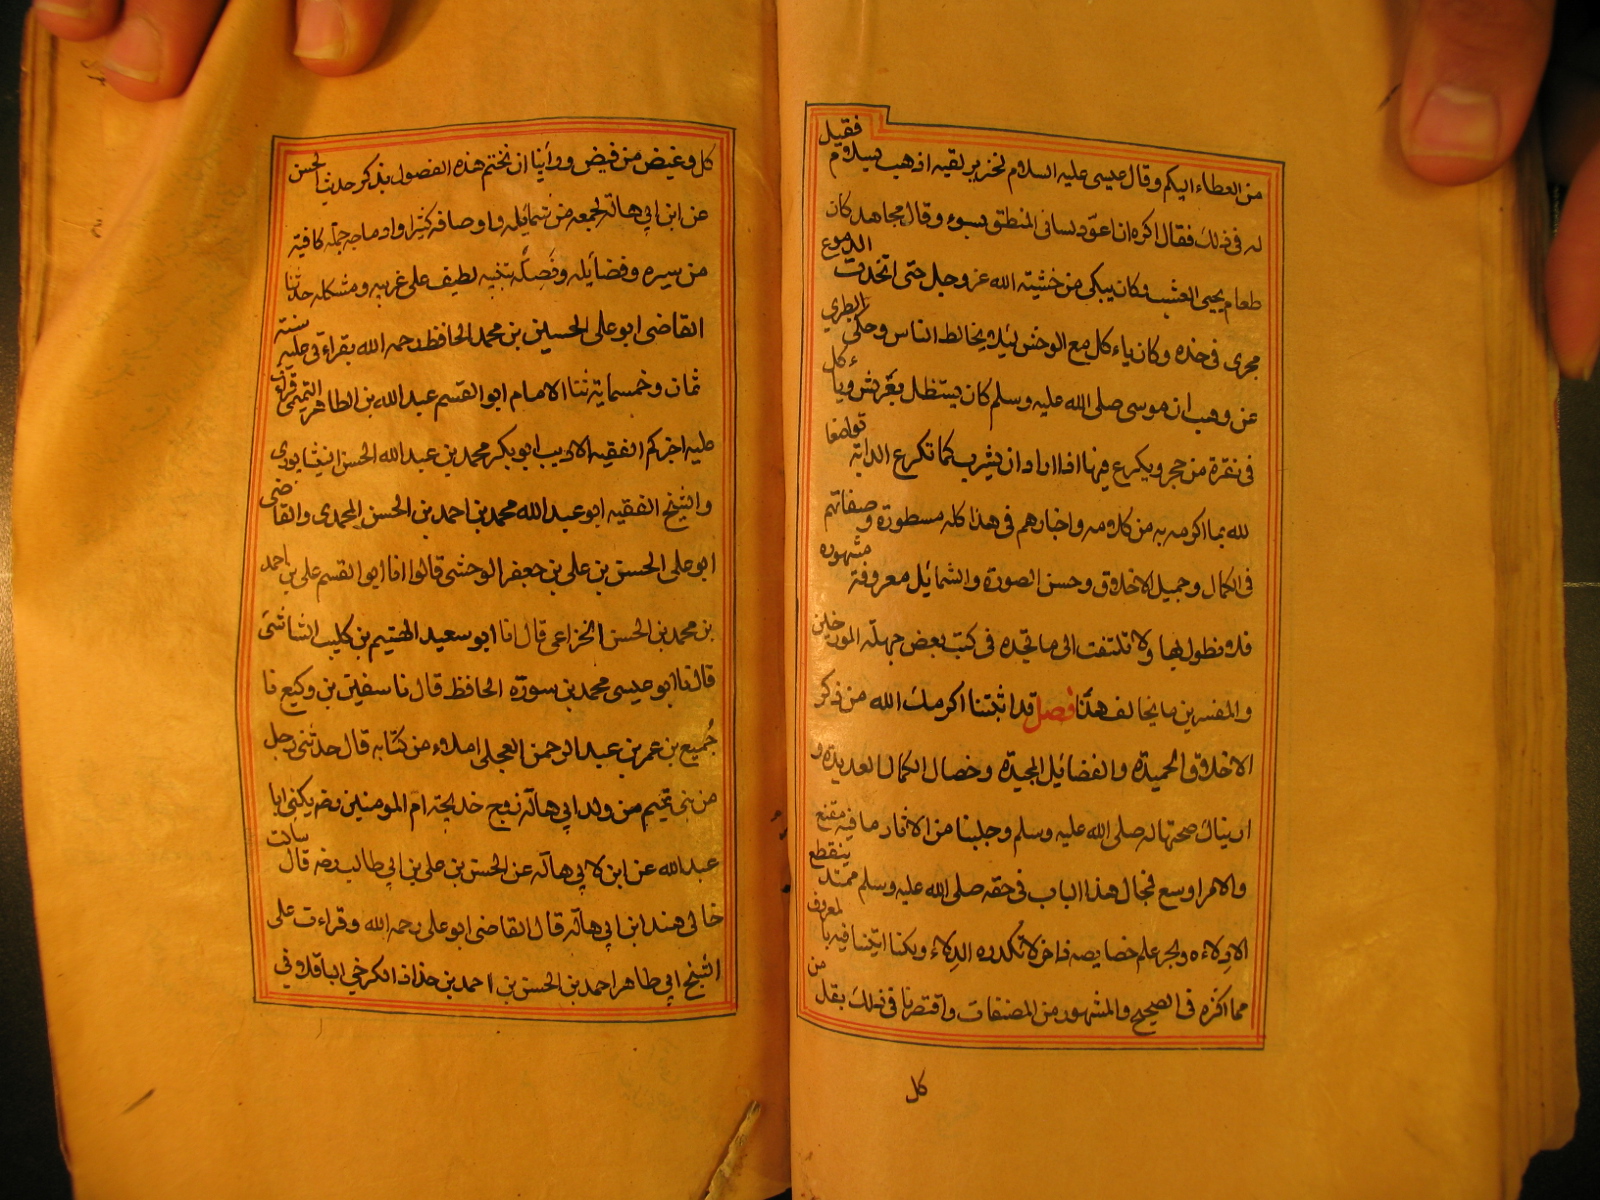 من العطاء اليكم وقال عيسى عليه السلام لخنزير لقيه اذهب بسلام فقيل
له فى ذلك فقال اكره ان اعوّد لسانى المنطق بسوء وقال مجاهد كان
طعام يحيى العشب وكان يبكى من خشيته الله عز وجل حتى اتخذت الدموع
مجرى فى خده وكان ياءكل مع الوحش ليلا يخالط الناس وحكى الطبرى
عن وهب ان موسى صلى الله عليه وسلم كان يستظل بعريش وياءكل
فى نقرة من حجر ويكرع فيها اذا اراد ان يشرب كما تكرع الدابة تواضعا
لله بما اكرمه به من كلامه واخبارهم فى هذا كله مسطورة وصفاتهم
فى الكمال وجميل الاخلاق وحسن الصورة والشمايل معروفة مشهوره
فلا نطول بها ولا تلتفت الى ما تجده فى كتب بعض جهلة المورخين
والمفسرين ما يخالف هذا فصل قد اثبتنا اكرمك الله من ذكر
الاخلاق الحميدة والفضايل المجيدة وخصال الكمال العديدة و
اريناك صحتها له صلى الله عليه وسلم وجلبنا من الاثار ما فيه مقنع
والامر اوسع فمجال هذا الباب فى حقه صلى الله عليه وسلم ممتد ينقطع
الادلاءه وبحر علم خصايصه زاخر لا تكدره الدلاء ولكنا اتينا فيه بالمعروف
مما اكثره فى الصحيح والمشهور من المصنفات واقتصرنا فى ذلك بقل من
كل
كل وغيض من فيض وراينا ان نختم هذه الفصول بذكر حديث الحسن
عن ابن ابى هالة لجمعه من شمايله واوصافه كثيرا وادماجه جملة كافية
من سيره وفضايله ونصله بتنبيه لطيف على غريبه ومشكله حدثنا
القاضى ابو على الحسين بن محمد الحافظ رحمه الله بقراءتى عليه سنة
ثمان وخمسماية ثنا الامام ابو القسم عبد الله بن الطاهر التميمى قرات
عليه اخبركم الفقيه الاديب ابو بكر محمد بن عبد الله الحسن النيشابورى
والشيخ الفقيه ابو عبد الله محمد بن احمد بن الحسن المحمدى والقاضى
ابو على الحسن بن على بن جعفر الوحشى قالوا انا ابو القسم على بن احمد
بن محمد بن الحسن الخزاعى قال انا ابو سعيد الهيثم بن كليب الشاشى
قال نا ابو عيسى محمد بن سورة الحافظ قال نا سفين بن وكيع نا
جُميع بن عمر بن عبد الرحمن العجلى املاء من كتابه قال حدثنى رجل
من بنى تميم من ولد ابى هالة زوج خديجة ام المومنين رضه يكنى ابا
عبد الله عن ابن لابى هالة عن الحسن بن على بن ابى طالب رضه قال سالت
خالى هند ابن ابى هالة قال القاضى ابو على رحمه الله وقراءت على
الشيخ ابى طاهر احمد بن الحسن بن احمد بن خذاذ الكرخي الباقلاوي